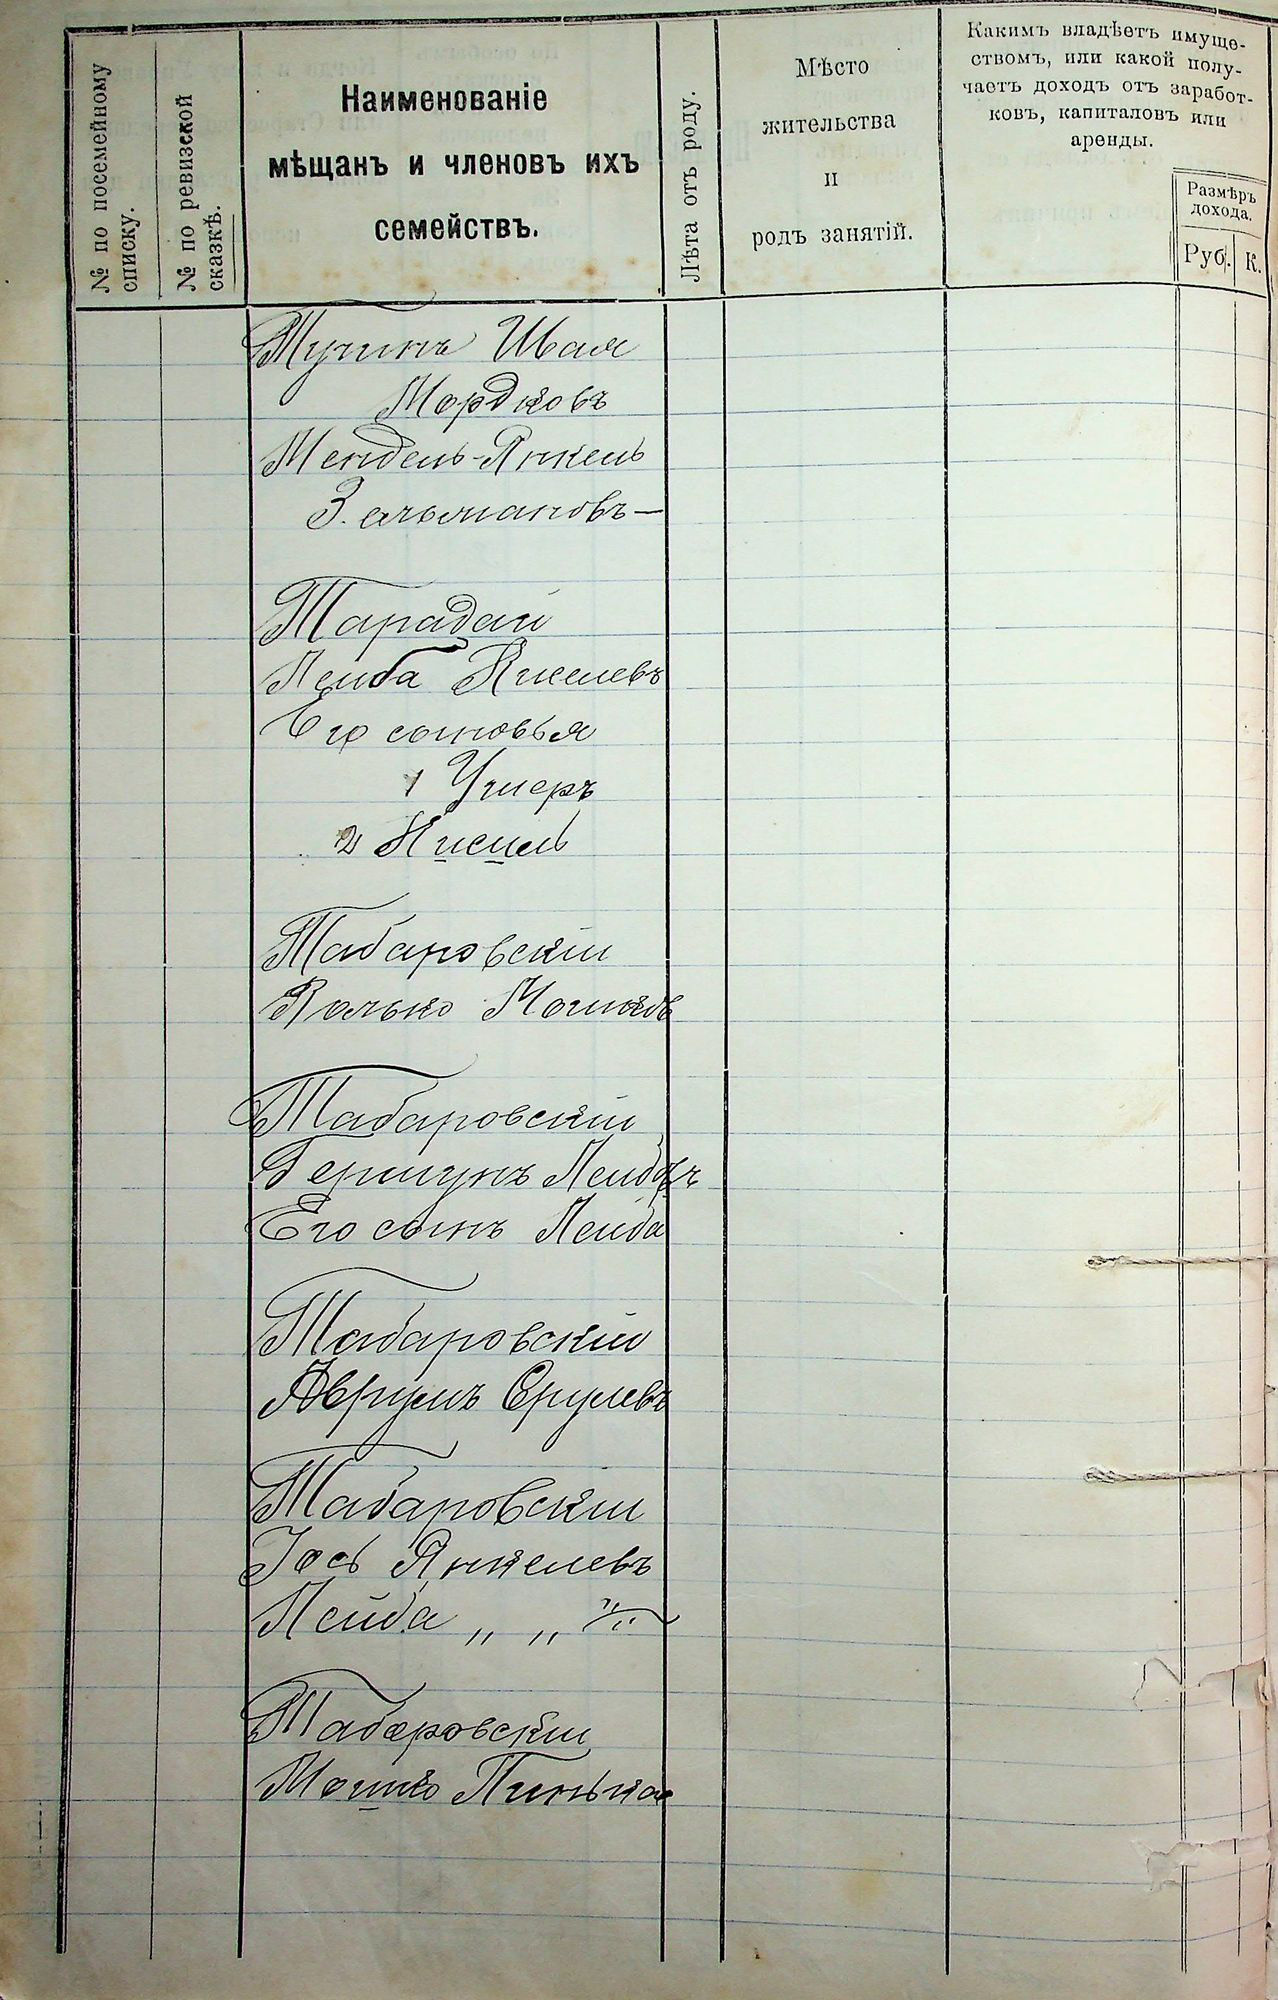 № по посемейному
списку.
№ по ревизской
сказкѣ.
Наименованіе
мѣщанъ и членовъ ихъ
семействъ.
Лѣта отъ роду.
Мѣсто
жительства
и
родъ занятій.
Какимъ владѣетъ имуще-
ствомъ, или какой полу-
чаетъ доходъ отъ заработ-
ковъ, капиталовъ или
аренды.
Размѣръ
дохода.
Руб. К.
Шая
Мордковъ
Мендель-Янкель
Зельмановъ
Тарадай
Лейба Киселевъ
Его сыновья
1 Ушеръ
2 Кисиль
Табаровскій
Волько Мошковъ
Табаровскій
Гершунъ Лейбовъ
Его сынъ Лейба
Табаровскій
Аврумъ Срулевъ
Табаровскій
Іось Янкелевъ
Лейба „ „ „
Табаровскій
Мошко